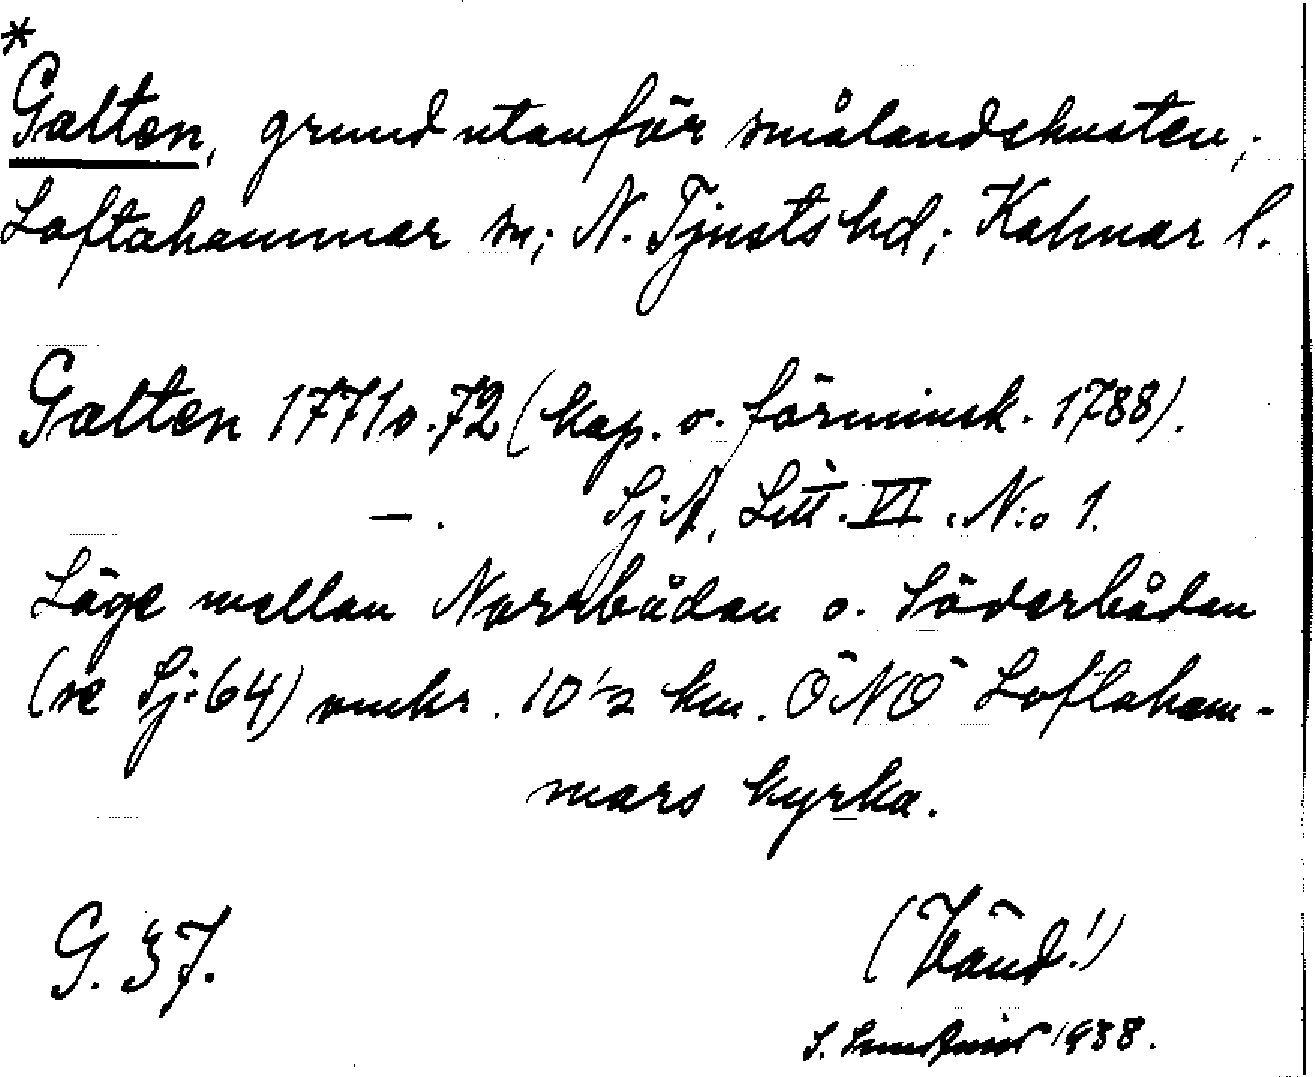 *
Galten, grund utanför smålandskusten,
Loftahammar sn; N. Tjusts hd; Kalmar l.
Galten 1771 o. 72 (kop. o. förminsk. 1788).
— . Sj.A, Litt. VI. N:o 1.
Läge mellan Norrbådan o. Söderbådan
(se Sj:64) omkr. 10 1/2 km. ÖNÖ Loftaham-
mars kyrka.
G. 37. (Vänd!)
S. 1938.